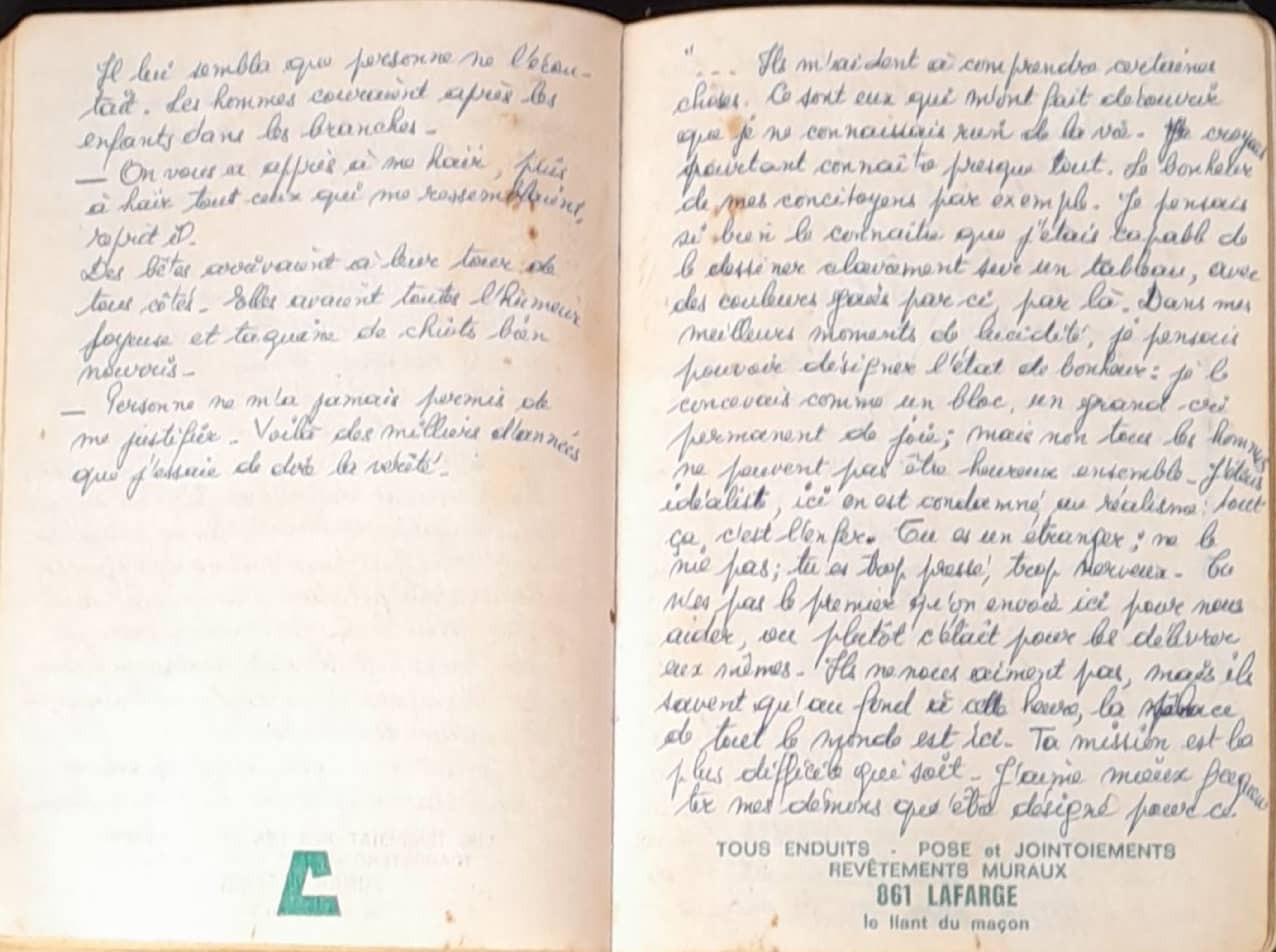 Il lui sembla que personne ne l'écou-
tait. Les hommes couraient après les
enfants dans les branches -
— On vous a appris à me haïr, puis
à haïr tout ceux qui me ressemblaient,
reprit il.
Des bêtes arrivaient à leur tour de
tous côtés - Elles avaient toutes l'humeur
joyeuse et taquine de chiots bien
nourris -
— Personne ne m'a jamais permis de
me justifier - Voilà des milliers d'années
que j'essaie de dire la vérité -
"... Ils m'aident à comprendre certaines
choses. Ce sont eux qui m'ont fait découvrir
que je ne connaissais rien de la vie - Je croyais
pourtant connaître presque tout. Le bonheur
de mes concitoyens par exemple. Je pensais
si bien le connaître que j'étais capable de
le dessiner clairement sur un tableau, avec
des couleurs gaies par ci, par là. Dans mes
meilleurs moments de lucidité, je pensais
pouvoir désigner l'état de bonheur : je le
concevais comme un bloc, un grand cri
permanent de joie ; mais non tous les hommes
ne peuvent pas être heureux ensemble - J'étais
idéaliste, ici on est condamné au réalisme : tout
ça, c'est l'enfer. Tu es un étranger ; ne le
nie pas ; tu es trop pressé, trop nerveux - Tu
n'es pas le premier qu'on envoie ici pour nous
aider, ou plutôt c'était pour les délivrer
eux mêmes - Ils ne nous aiment pas, mais ils
savent qu'au fond à cette heure, la
de tout le monde est ici - Ta mission est la
plus difficile qui soit - J'aime mieux
ter mes démons que d'être désigné pour ce
TOUS ENDUITS - POSE et JOINTOIEMENTS
REVÊTEMENTS MURAUX
861 LAFARGE
le liant du maçon